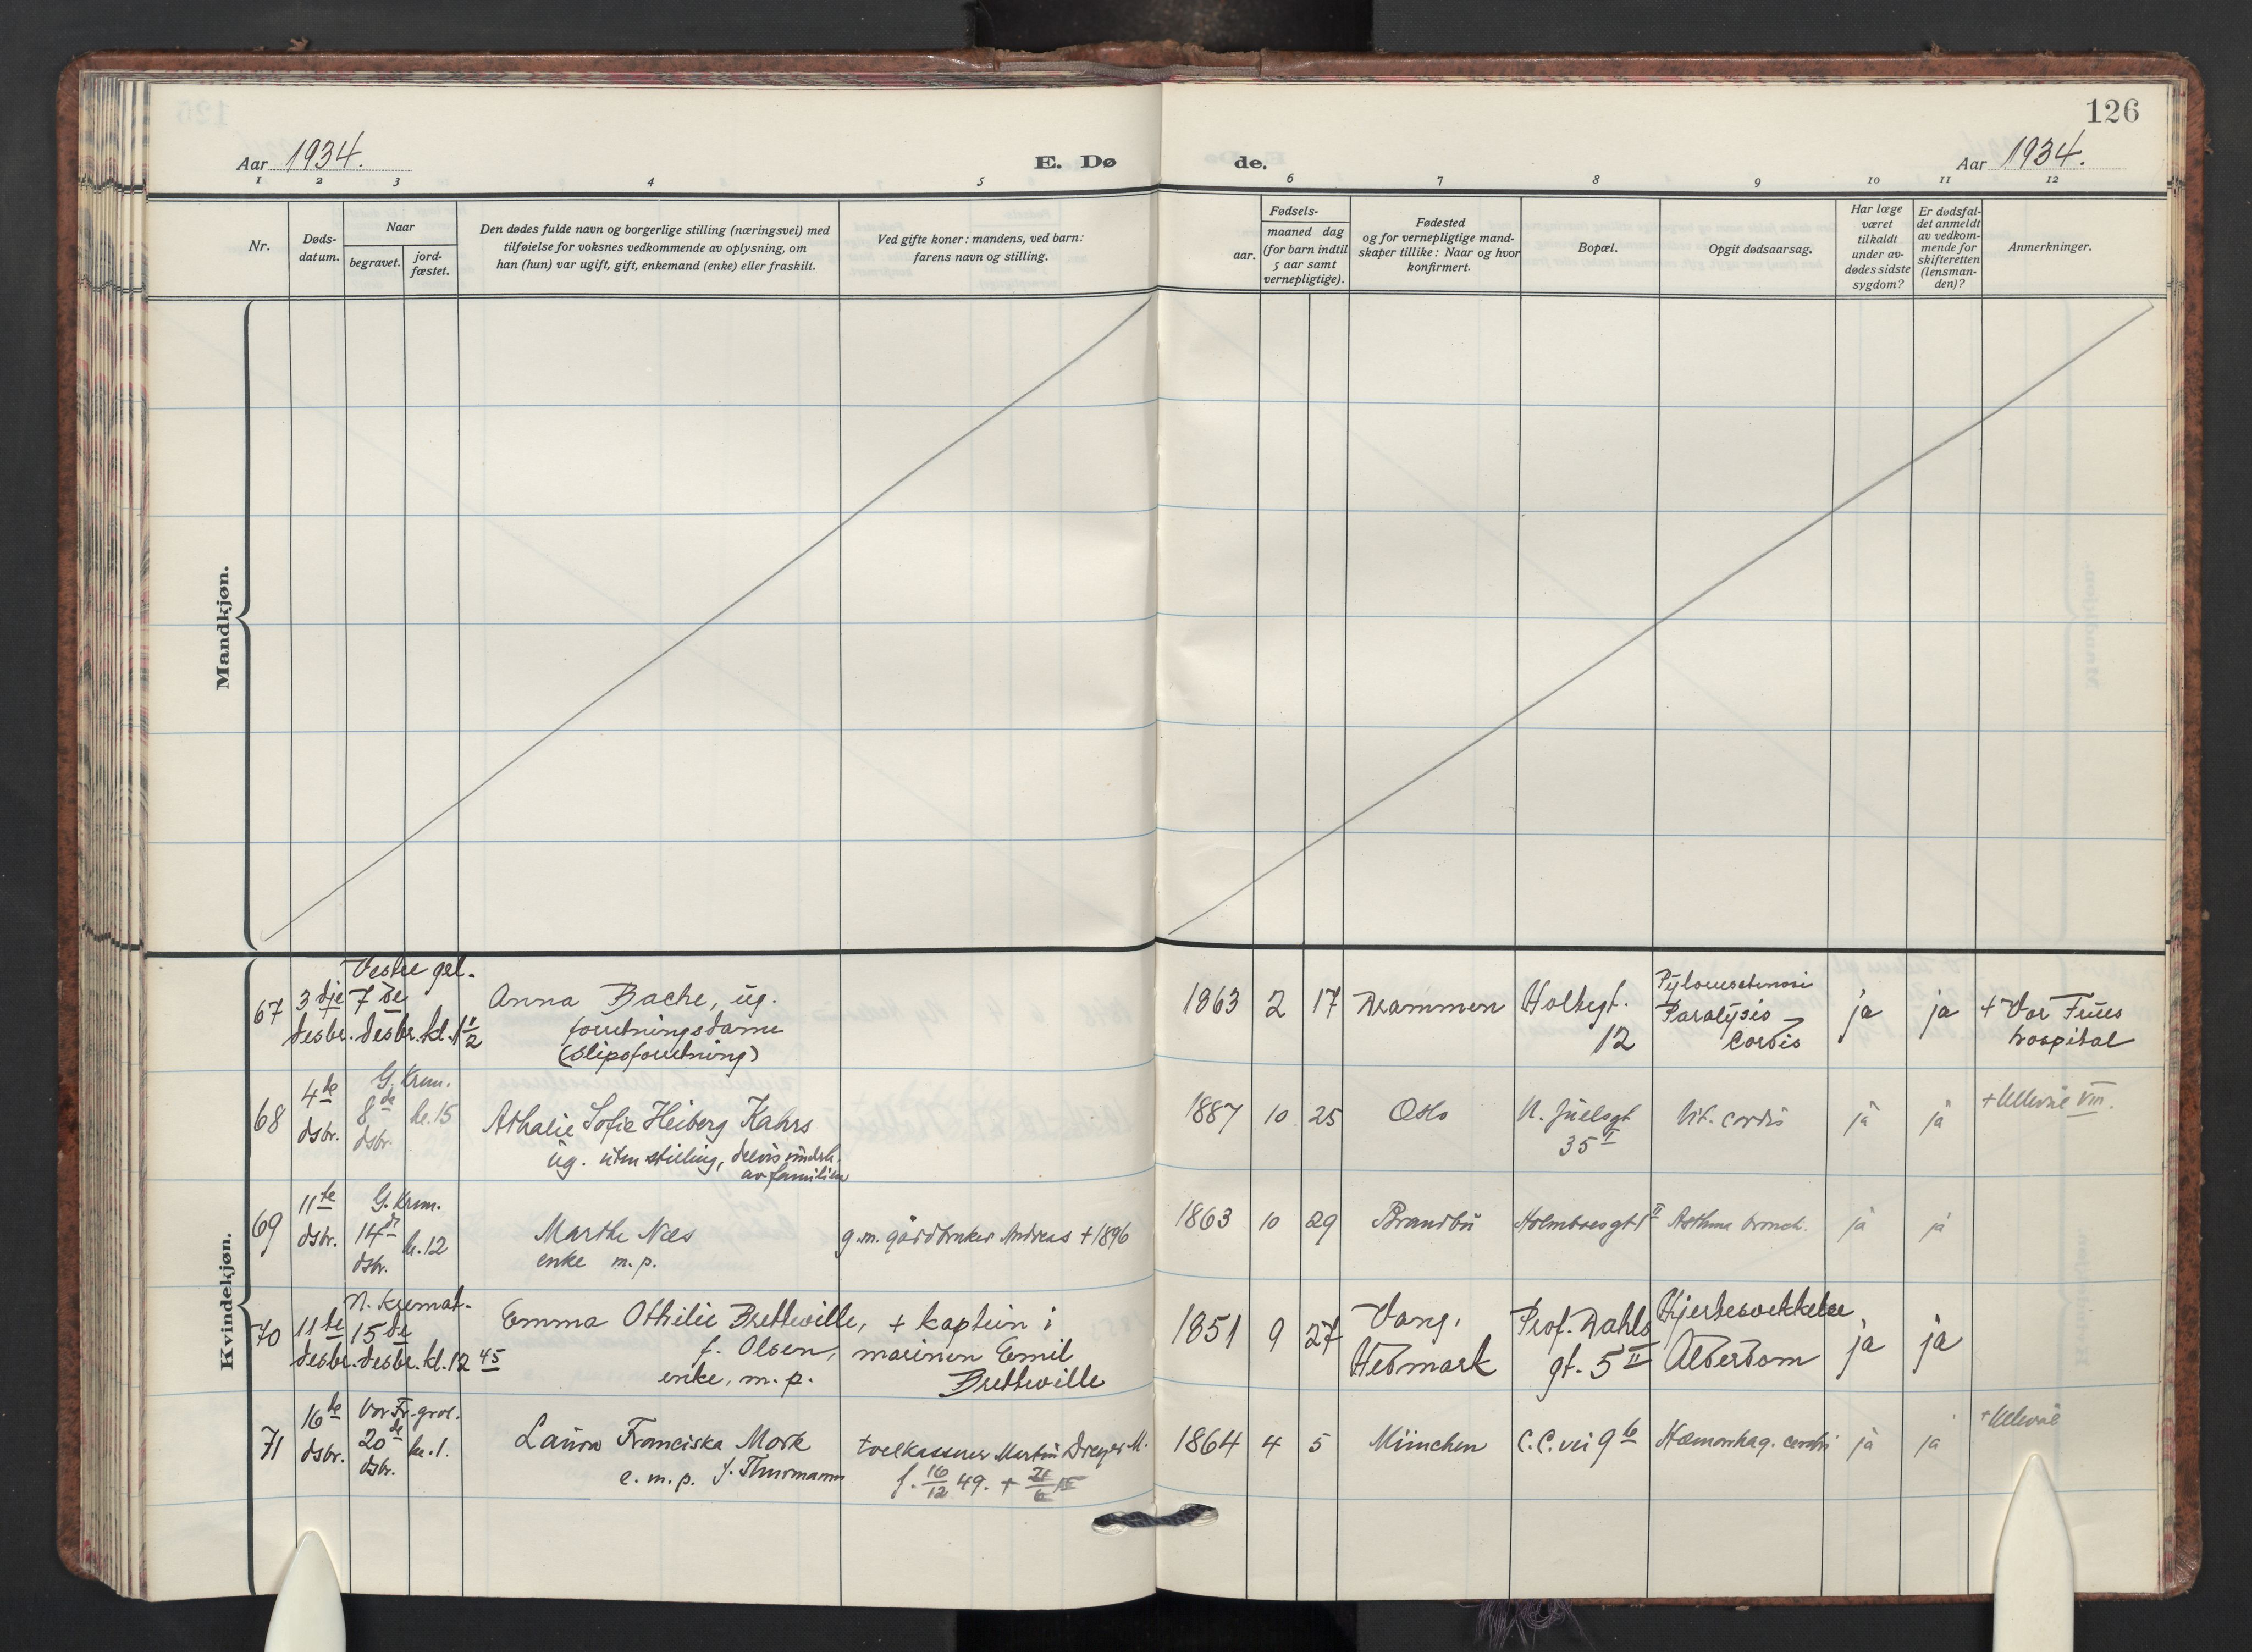 126
Aar 1934.
E. Dø
de.
Aar 1934.
1 2 3 4 5
6 7 8 9 10 11 12
Nr.
Døds-
datum.
Naar
begravet.
jord-
fæstet.
Den dødes fulde navn og borgerlige stilling (næringsvei) med
tilføielse for voksnes vedkommende av oplysning, om
han (hun) var ugift, gift, enkemand (enke) eller fraskilt.
Ved gifte koner: mandens, ved barn:
farens navn og stilling.
Fødsels-
aar.
maaned dag
(for barn indtil
5 aar samt
vernepligtige).
Fødested
og for vernepligtige mand-
skaper tillike: Naar og hvor
konfirmert.
Bopæl.
Opgit dødsaarsag.
Har læge
været
tilkaldt
under av-
dødes sidste
sygdom?
Er dødsfal-
det anmeldt
av vedkom-
mende for
skifteretten
(lensman-
den)?
Anmerkninger.
Mandkjøn.
Kvindekjøn.
67
3dje
desbr.
Vestre gal.
7de
desbr. kl. 1 1/2
Anna Bache, ug.
forretningsdame
(slipsforretning)
1863 2 17
Drammen
Holtegt.
12
Pylorusstenosi
Paralysis
Cordis
ja
ja
+ Vor Frues
hospital
68
4de
dsbr.
G. Krem.
8de
dsbr.
kl. 15
Athalie Sofie Heiberg Kahrs
ug. uten stilling, delvis underh.
av familien
1887 10 25
Oslo
N. Juelsgt
35 I
Vit. cordis
ja
ja
+ Ullevål VIII.
69
11te
dsbr.
G. Krem.
14de
dsbr.
kl. 12
Marthe Næs
enke m. p.
g. m. gårdbruker Andreas + 1896
1863 10 29
Brandbu
Holmboesgt 1 II
Asthma bronch.
ja
ja
70
11te
desbr.
N. kremat.
15de
desbr. kl. 12 45
Emma Othilie Bretteville,
f. Olsen,
enke, m. p.
+ kaptein i
marinen Emil
Bretteville
1851 9 27
Vang,
Hedmark
Prof. Dahls
gt. 5 II
Hjertesvekkelse
Alderdom
ja
ja
71
16de
dsbr.
Vor Fr. grvl.
20de
dsbr.
kl. 1.
Laura Franciska Mork
e. m. p. f. Thurmann
tollkasserer Martin Dreyer M.
f. 16/12 49. +
1864 4 5
München
C. C. vei 9 b
Hæmorrhag. cerebri
ja
ja
+ Ullevål